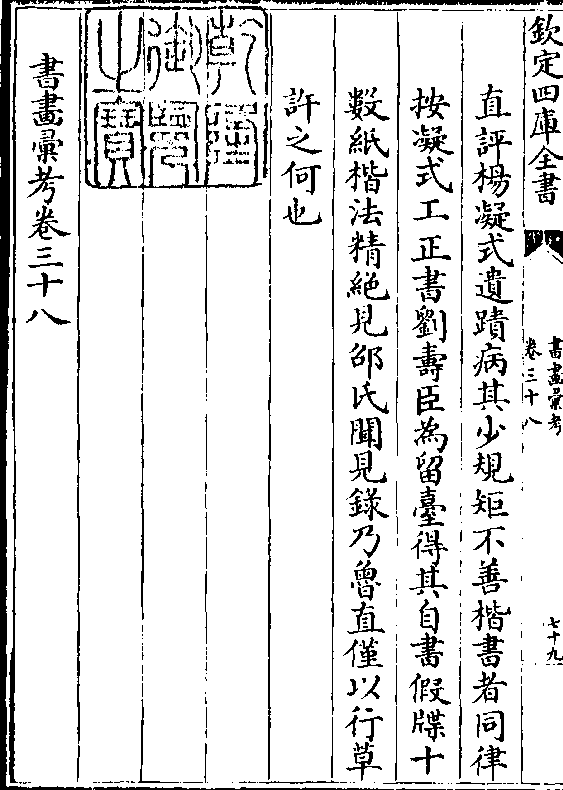 欽定四庫全書
書畫彙考
卷三十八
七十九
直評楊凝式遺蹟病其少規矩不善楷書者同律
按凝式工正書劉壽臣為留臺得其自書假牒十
數紙楷法精絶見邵氏聞見錄乃魯直僅以行草
許之何也
乾隆
御覽
之寶
書畫彙考卷三十八